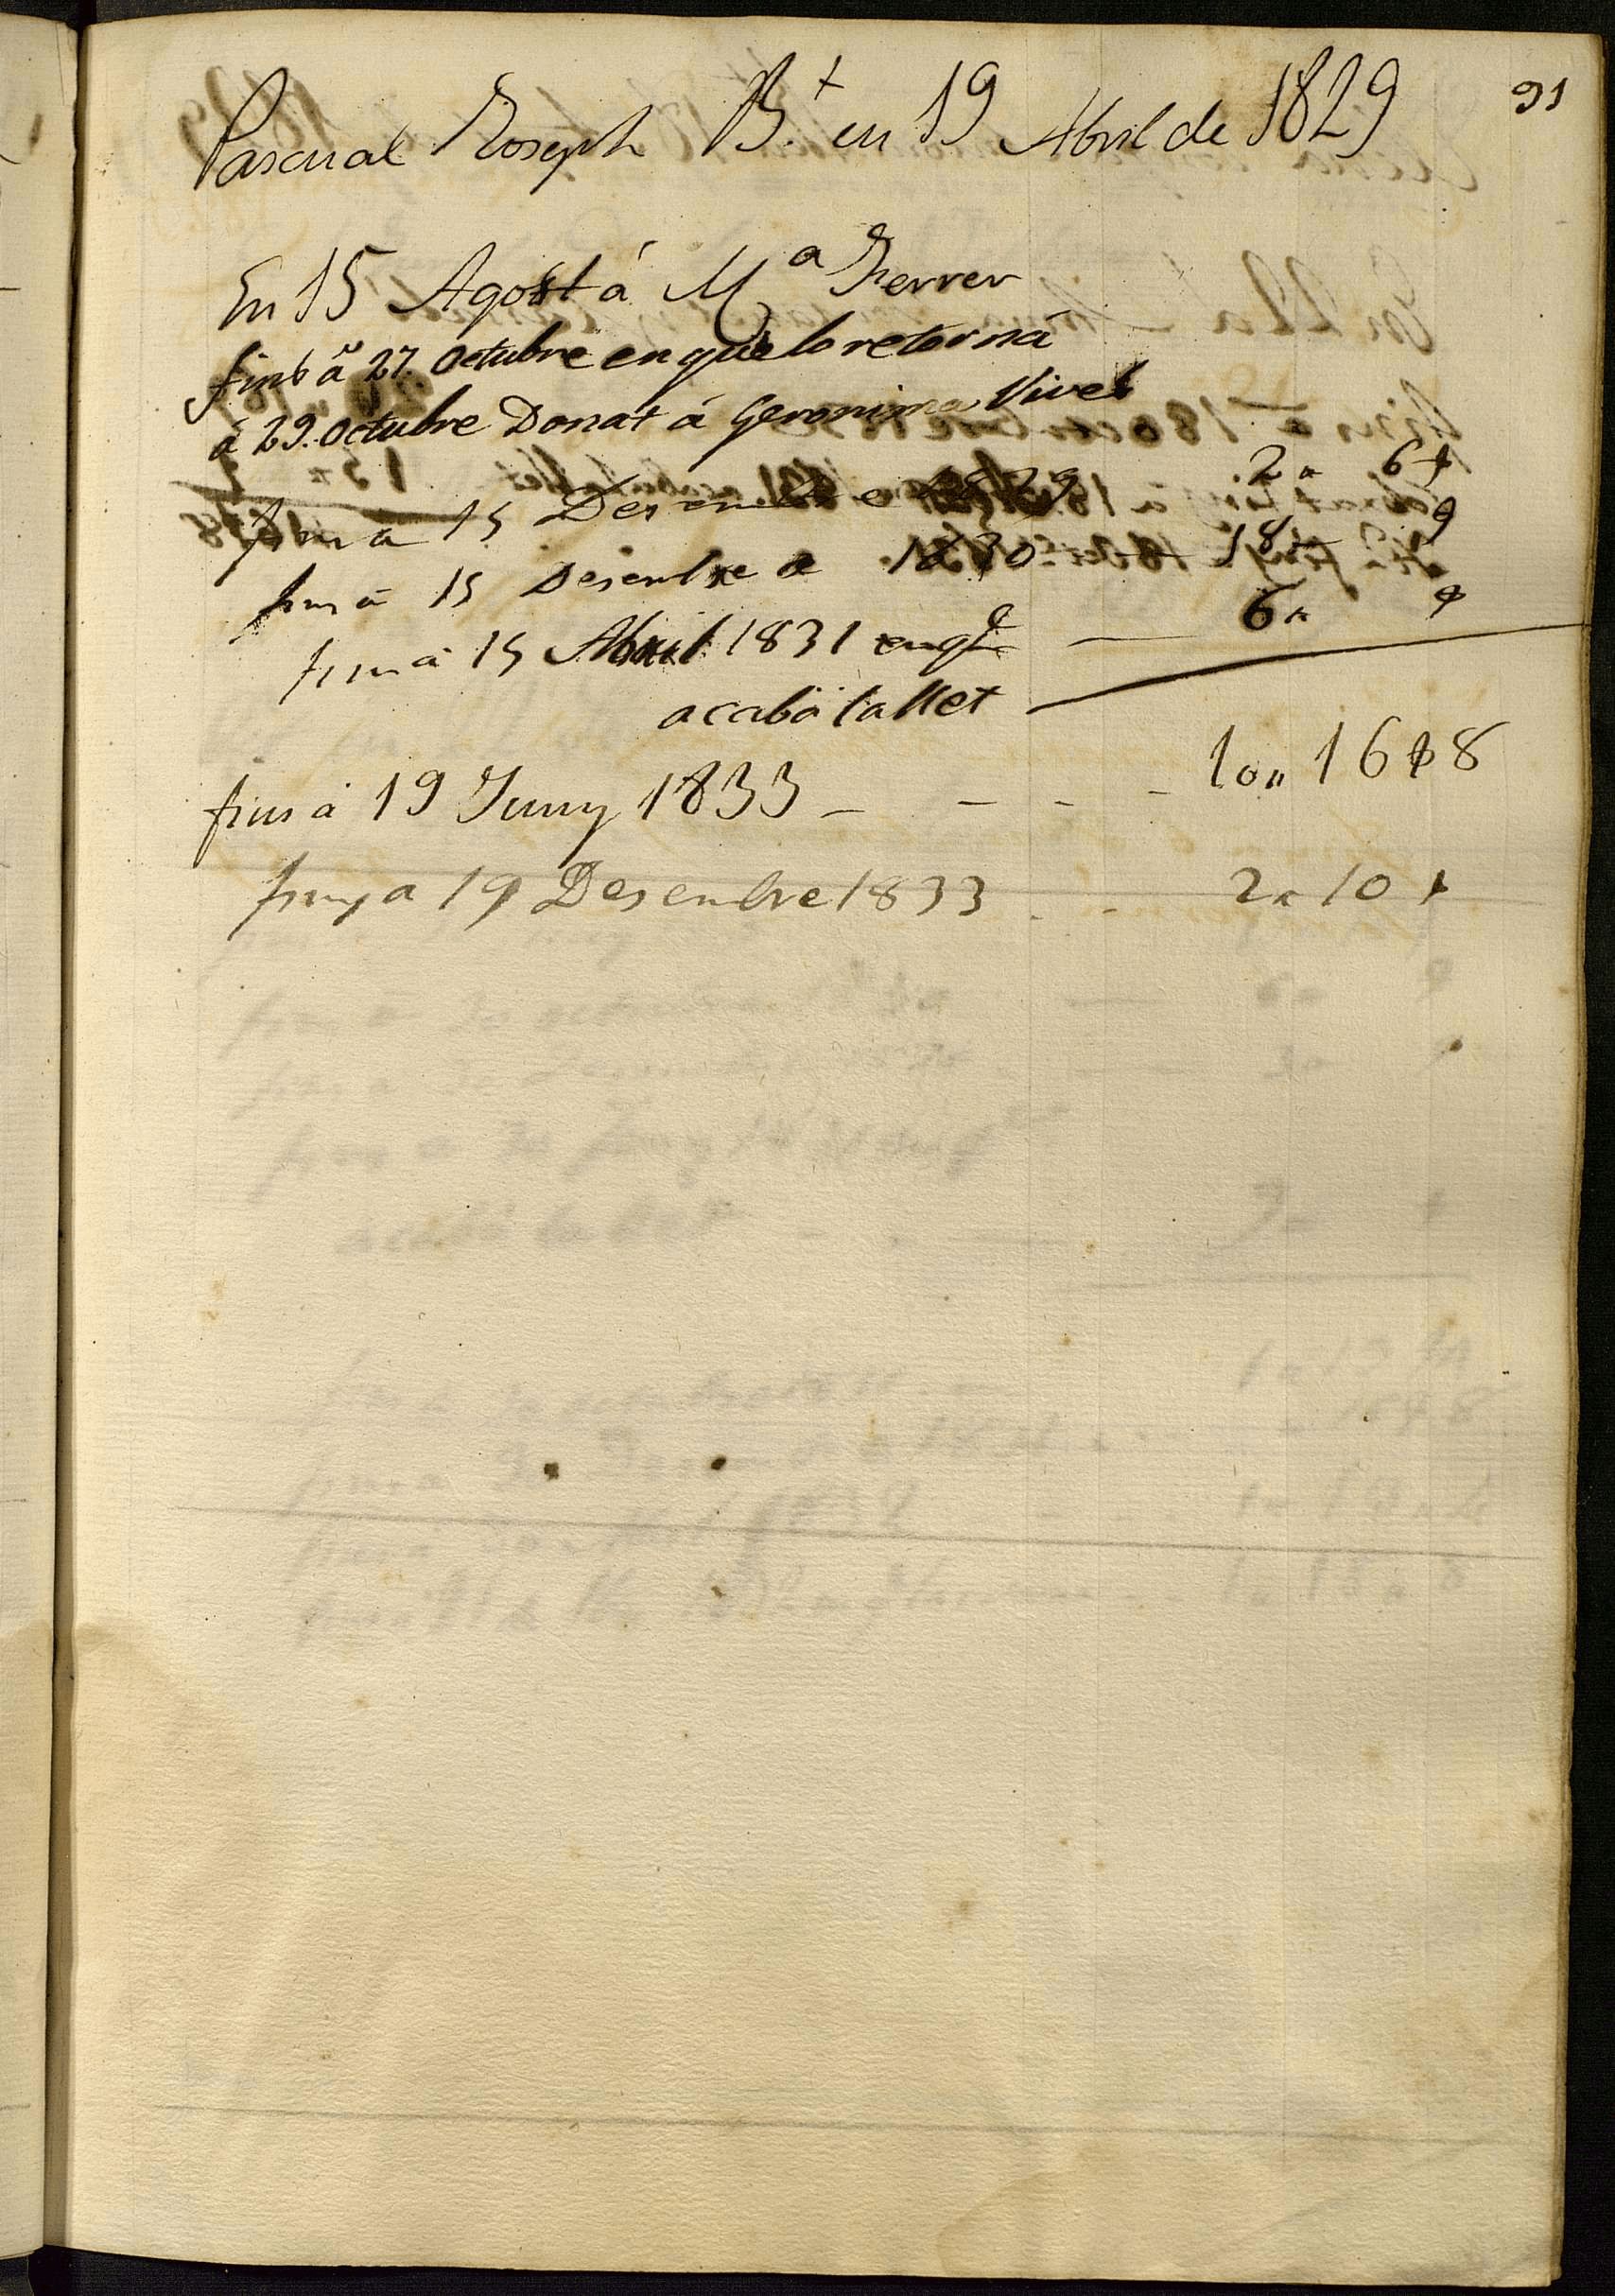 91
Pascual Joseph B.t en 19 Abril de 1829
En 15 Agost á Ma Ferrer
fins á 27. Octubre en que lo retorná
á 29. Octubre Donat á Geronima Vives
fins á 15 Desembre 1829 2 " 6 +
fins á 15 Desembre de 1830 18 "
fins á 15 Abril 1831 en q.e 6 "
acabá la llet
fins á 19 Juny 1833 - - - - 10 " 16 + 8
fins a 19 Desembre 1833 . - 2 " 10 +